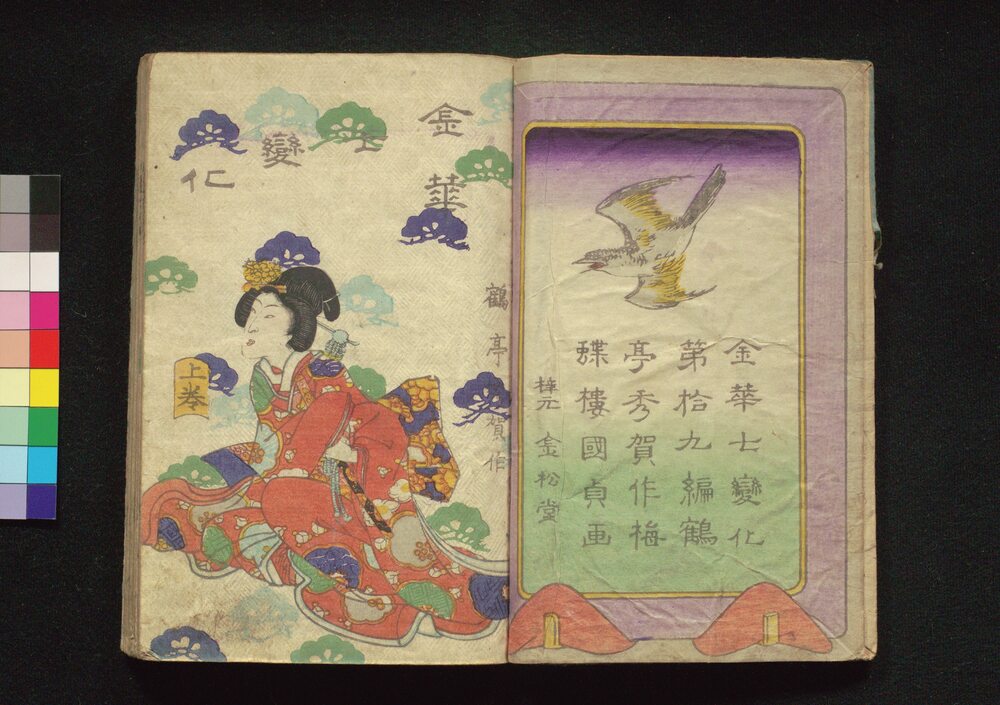 金華七變化
第拾九編鶴
亭秀賀作梅
蝶樓國貞画
梓元 金松堂
金華
七
變
化
鶴亭
賀作
上巻